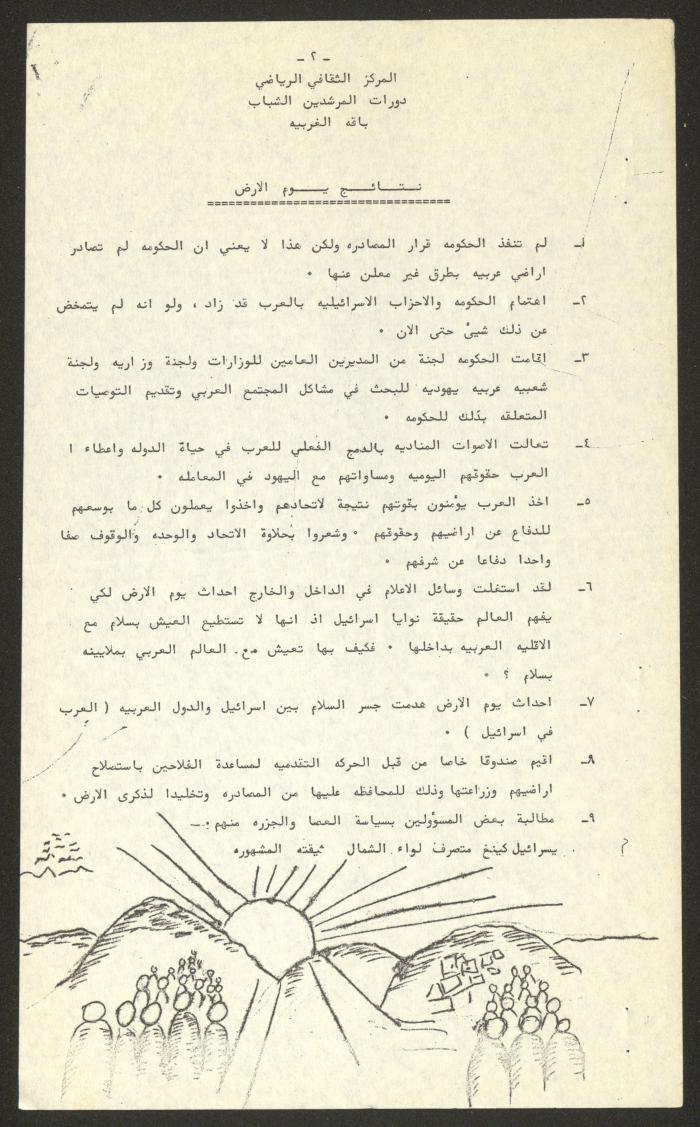 - ٢ -
المركز الثقافي الرياضي
دورات المرشدين الشباب
باقه الغربيه
نـتـائـج يـوم الارض
١ـ لم تنفذ الحكومه قرار المصادره ولكن هذا لا يعني ان الحكومه لم تصادر
اراضي عربيه بطرق غير معلن عنها ٠
٢ـ اهتمام الحكومه والاحزاب الاسرائيليه بالعرب قد زاد ، ولو انه لم يتمخض
عن ذلك شيئ حتى الان ٠
٣ـ اقامت الحكومه لجنة من المديرين العامين للوزارات ولجنة وزاريه ولجنة
شعبيه عربيه يهوديه للبحث في مشاكل المجتمع العربي وتقديم التوصيات
المتعلقه بذلك للحكومه ٠
٤ـ تعالت الاصوات المناديه بالدمج الفعلي للعرب في حياة الدوله واعطاء ا
العرب حقوقهم اليوميه ومساواتهم مع اليهود في المعامله ٠
٥ـ اخذ العرب يؤمنون بقوتهم نتيجة لاتحادهم واخذوا يعملون كل ما بوسعهم
للدفاع عن اراضيهم وحقوقهم ٠ وشعروا بحلاوة الاتحاد والوحده والوقوف صفا
واحدا دفاعا عن شرفهم ٠
٦ـ لقد استغلت وسائل الاعلام في الداخل والخارج احداث يوم الارض لكي
يفهم العالم حقيقة نوايا اسرائيل اذ انها لا تستطيع العيش بسلام مع
الاقليه العربيه بداخلها ٠ فكيف بها تعيش مع العالم العربي بملايينه
بسلام ؟ ٠
٧ـ احداث يوم الارض هدمت جسر السلام بين اسرائيل والدول العربيه ( العرب
في اسرائيل ) ٠
٨ـ اقيم صندوقا خاصا من قبل الحركه التقدميه لمساعدة الفلاحين باستصلاح
اراضيهم وزراعتها وذلك للمحافظه عليها من المصادره وتخليدا لذكرى الارض ٠
٩ـ مطالبة بعض المسؤولين بسياسة العصا والجزره منهم :ـ
يسرائيل كينغ متصرف لواء الشمال المشهوره